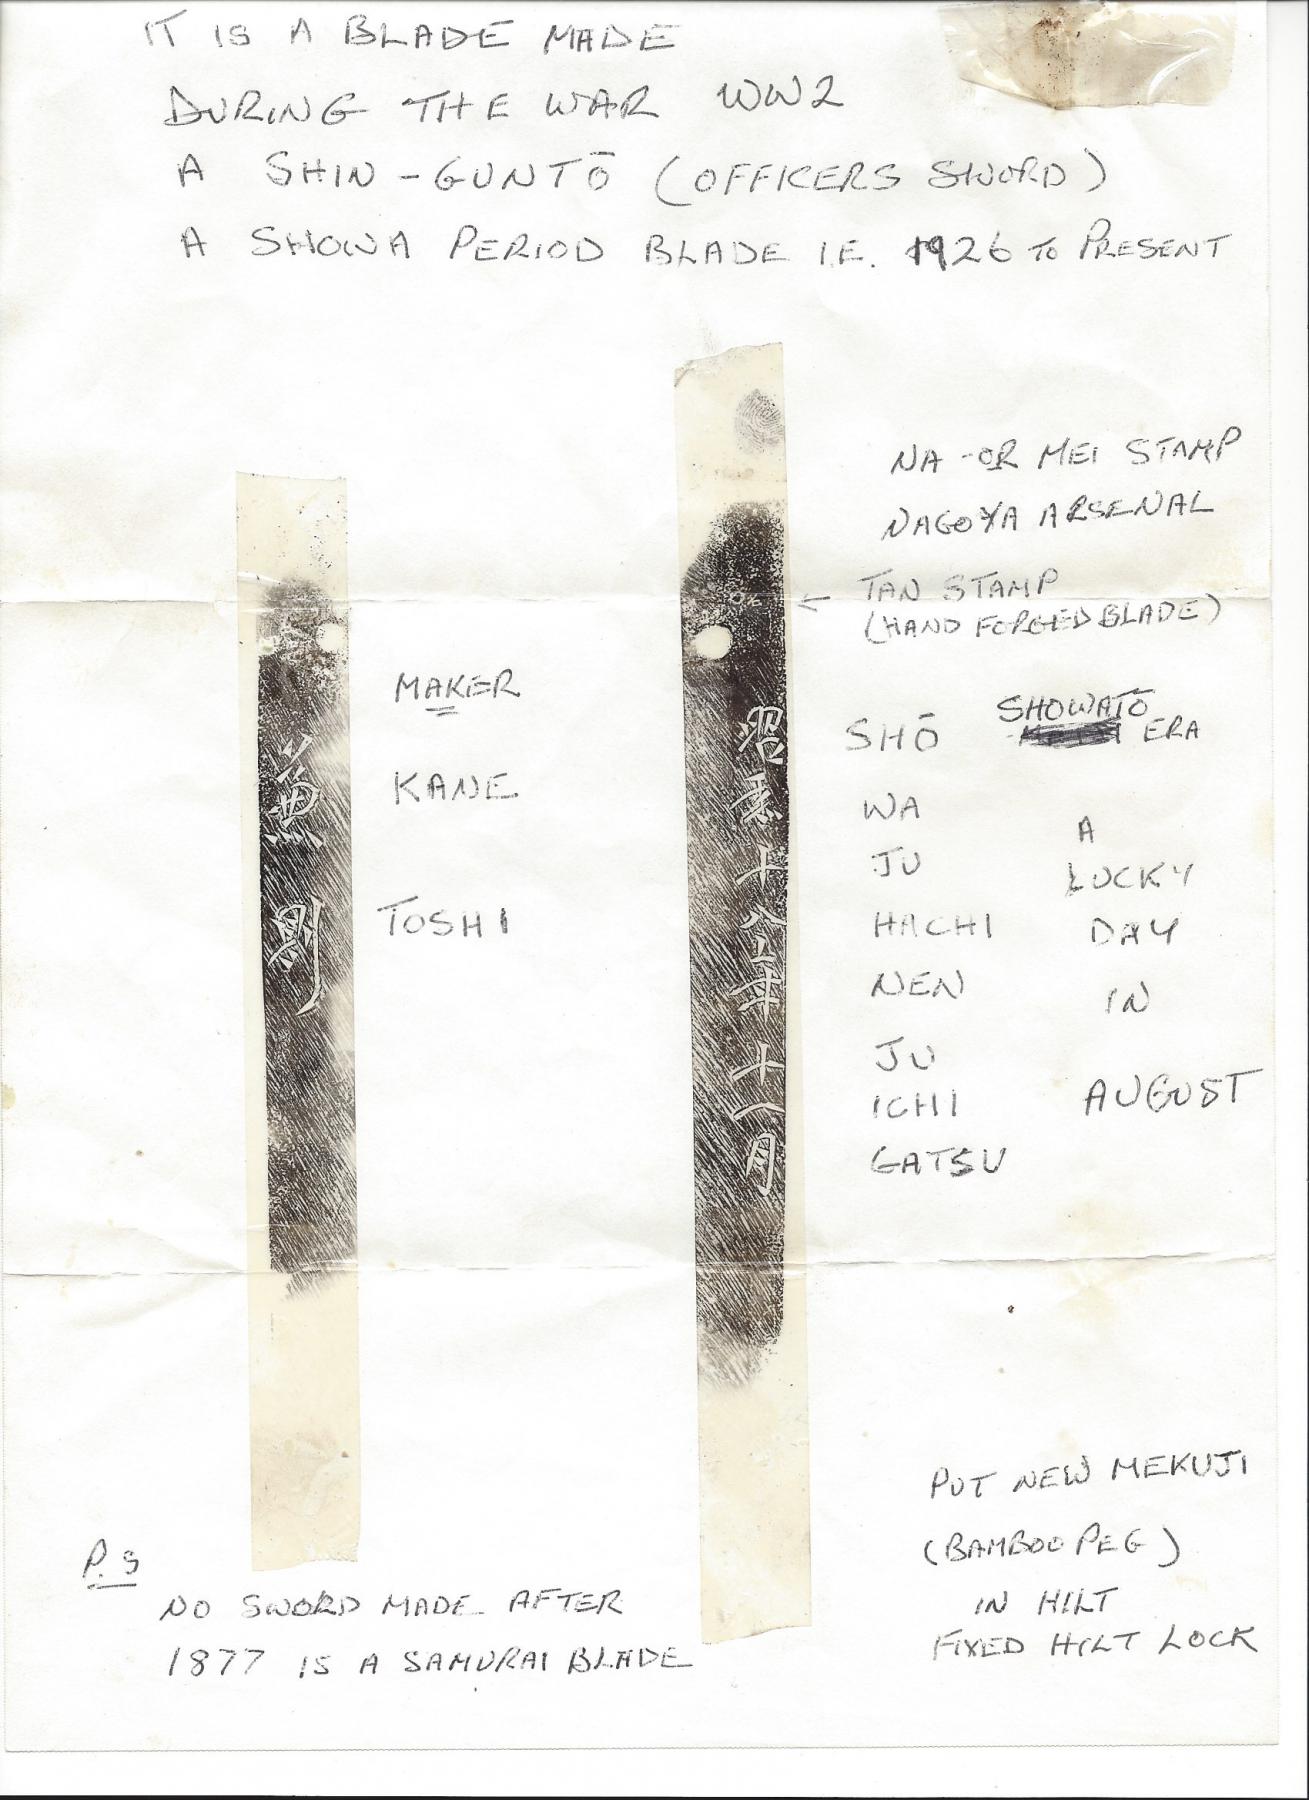 IT IS A BLADE MADE
DURING THE WAR WW2
A SHIN-GUNTŌ (OFFICERS SWORD)
A SHOWA PERIOD BLADE I.E. 1926 TO PRESENT
兼
MAKER
KANE
TOSHI
昭和十八年十一月
NA-OR MEI STAMP
NAGOYA ARSENAL
← TAN STAMP
(HAND FORGED BLADE)
SHŌ SHOWATO ERA
WA A
JU LUCKY
HACHI DAY
NEN IN
JU
ICHI AUGUST
GATSU
PUT NEW MEKUJI
(BAMBOO PEG)
IN HILT
FIXED HILT LOCK
P.S
NO SWORD MADE AFTER
1877 IS A SAMURAI BLADE